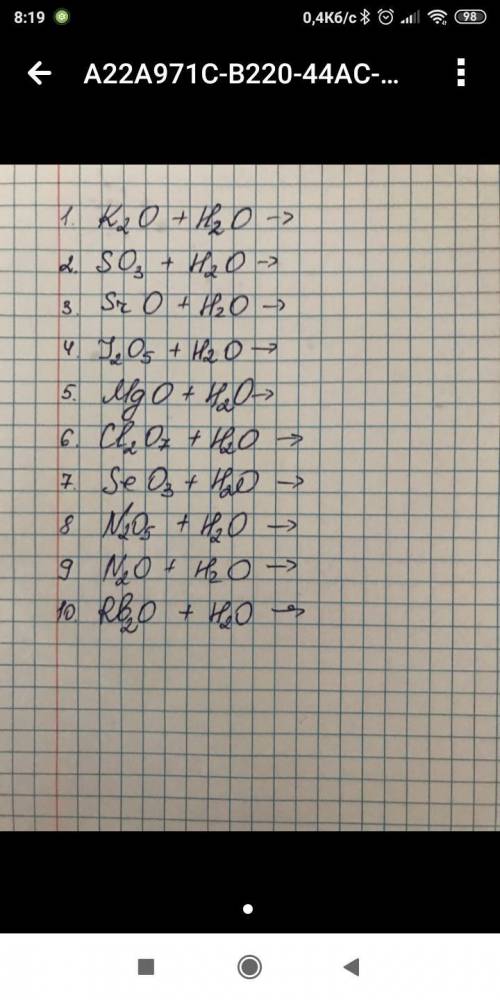 8:19 0,4Кб/с 98
A22A971C-B220-44AC-...
1. K₂O + H₂O →
2. SO₃ + H₂O →
3. SrO + H₂O →
4. J₂O₅ + H₂O →
5. MgO + H₂O →
6. Cl₂O₇ + H₂O →
7. SeO₃ + H₂O →
8 N₂O₅ + H₂O →
9 N₂O + H₂O →
10. Rb₂O + H₂O →